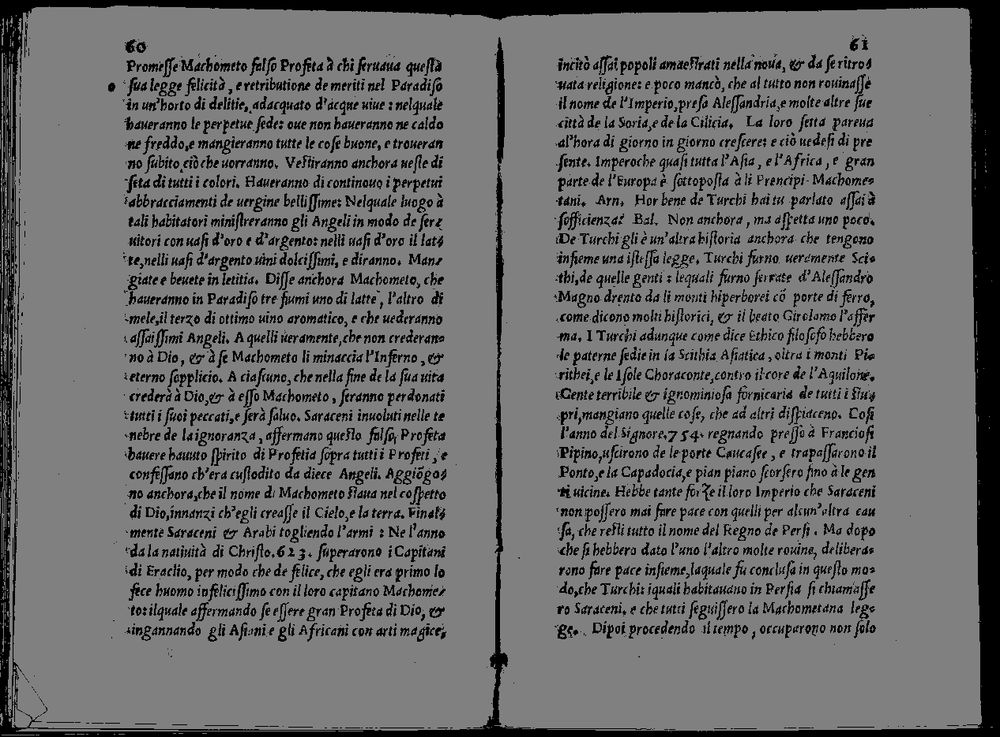 60
Promesse Machometo falso Profeta à chi seruaua questa
sua legge felicità, e retributione de meriti nel Paradiso
in un'horto di delitie, adacquato d'acque uiue: nelquale
haueranno le perpetue sede: oue non haueranno ne caldo
ne freddo, e mangieranno tutte le cose buone, e troueran
no subito ciò che uorranno. Vestiranno anchora ueste di
seta di tutti i colori. Haueranno di continouo i perpetui
abbracciamenti de uergine bellissime: Nelquale luogo à
tali habitatori ministreranno gli Angeli in modo de ser⸗
uitori con uasi d'oro e d'argento: nelli uasi d'oro il lat⸗
te, nelli uasi d'argento uini dolcissimi, e diranno. Man⸗
giate e beuete in letitia. Disse anchora Machometo, che
haueranno in Paradiso tre fiumi uno di latte, l'altro di
mele, il terzo di ottimo uino aromatico, e che uederanno
assaissimi Angeli. A quelli ueramente, che non crederan⸗
no à Dio, & à se Machometo li minaccia l'Inferno, &
eterno sopplicio. A ciascuno, che nella fine de la sua uita
crederà à Dio, & à esso Machometo, seranno perdonati
tutti i suoi peccati, e serà saluo. Saraceni inuoluti nelle te
nebre de la ignoranza, affermano questo falso Profeta
hauere hauuto spirito di Profetia sopra tutti i Profeti, e
confessano ch'era custodito da diece Angeli. Aggiōgo⸗
no anchora, che il nome di Machometo staua nel cospetto
di Dio, innanzi ch'egli creasse il Cielo, e la terra. Final⸗
mente Saraceni & Arabi togliendo l'armi: Ne l'anno
da la natiuità di Christo. 623. superarono i Capitani
di Eraclio, per modo che de felice, che egli era primo lo
fece huomo infelicissimo con il loro capitano Machome⸗
to: ilquale affermando se essere gran Profeta di Dio, &
ingannando gli Asiani e gli Africani con arti magice,
61
incitò assai popoli amaestrati nella noua, & da se ritro⸗
uata religione: e poco mancò, che al tutto non rouinasse
il nome de l'Imperio, presa Alessandria, e molte altre sue
città de la Soria, e de la Cilicia. La loro setta pareua
al'hora di giorno in giorno crescere: e ciò uedesi di pre
sente. Imperoche quasi tutta l'Asia, e l'Africa, e gran
parte de l'Europa è sottoposta à li Prencipi Machome⸗
tani. Arn. Hor bene de Turchi hai tu parlato assai à
sofficienza? Bal. Non anchora, ma aspetta uno poco.
De Turchi gli è un'altra historia anchora che tengono
insieme una istessa legge. Turchi furno ueramente Sci⸗
thi, de quelle genti: lequali furno serrate d'Alessandro
Magno drento da li monti hiperborei cō porte di ferro,
come dicono molti historici, & il beato Girolamo l'affer
ma. I Turchi adunque come dice Ethico filosofo hebbero
le paterne sedie in la Scithia Asiatica, oltra i monti Pi⸗
rithei, e le Isole Choraconte, contro il core de l'Aquilone.
Gente terribile & ignominiosa fornicaria de tutti i stu⸗
pri, mangiano quelle cose, che ad altri dispiaceno. Cosi
l'anno del Signore. 754. regnando presso à Franciosi
Pipino, uscirono de le porte Caucasee, e trapassarono il
Ponto, e la Capadocia, e pian piano scorsero fino à le gen
ti uicine. Hebbe tante forze il loro Imperio che Saraceni
non possero mai fare pace con quelli per alcun'altra cau
sa, che resti tutto il nome del Regno de Persi. Ma dopo
che si hebbero dato l'uno l'altro molte rouine, delibera⸗
rono fare pace insieme, laquale fù conclusa in questo mo⸗
do, che Turchi: iquali habitauano in Persia si chiamasse
ro Saraceni, e che tutti seguissero la Machometana leg⸗
ge. Dipoi procedendo il tempo, occuparono non solo